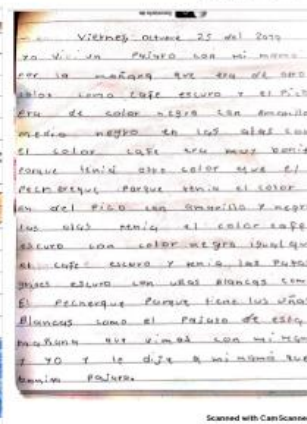 Viernes octubre 25 del 2020
Yo vi un Pajaro con mi mama
Por la mañana que era de otro
color como cafe escuro y el Pico
era de color negro con amarillo
medio negro en las alas com
el color cafe era muy bonit
Porque tenia otro color que el
Pechereque Porque tenia el color
del Pico con amarillo y negr
las alas tenia el color cafe
escuro con color negro igual qu
el cafe escuro y tenia las Pata
escuro con uñas Blancas com
El Pechereque Porque tiene las uña
Blancas como el Pajaro de esta
mañana que vimos con mi mam
y yo y le dije a mi mamá que
Pajaro.
Scanned with CamScanner